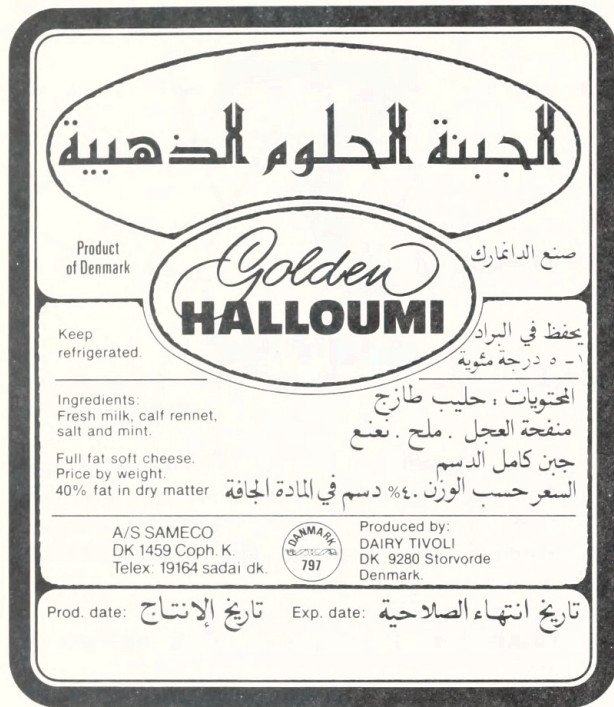 الجبنة الحلوم الذهبية
Product
of Denmark
Golden
HALLOUMI
صنع الدانمارك
Keep
refrigerated.
يحفظ في البراد
١- ٥ درجة مئوية
Ingredients:
Fresh milk, calf rennet,
salt and mint.
المحتويات : حليب طازج
منفحة العجل . ملح . نعنع
Full fat soft cheese.
Price by weight.
40% fat in dry matter
جبن كامل الدسم
السعر حسب الوزن ٤٠% دسم في المادة الجافة
A/S SAMECO
DK 1459 Coph. K.
Telex: 19164 sadai dk.
DANMARK
797
Produced by:
DAIRY TIVOLI
DK 9280 Storvorde
Denmark.
Prod. date: تاريخ الإنتاج
Exp. date: تاريخ انتهاء الصلاحية